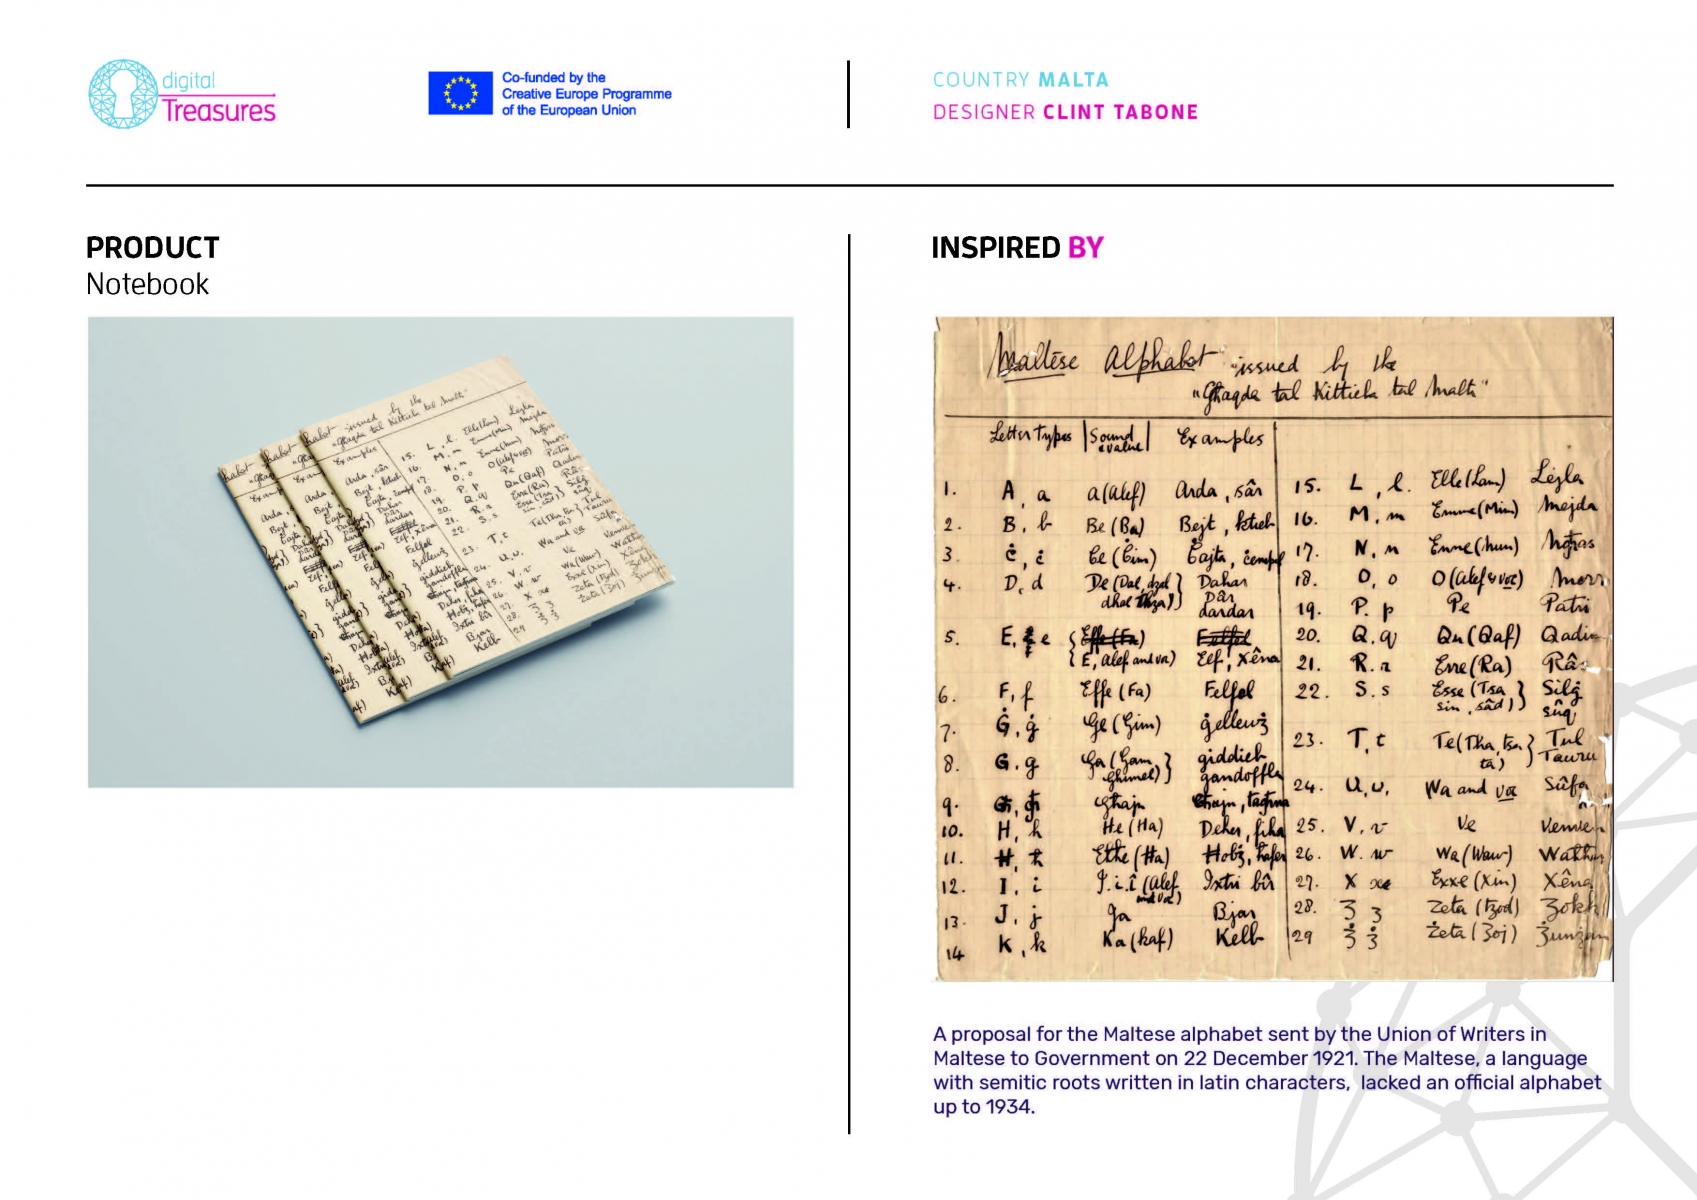 digital
Treasures
Co-funded by the
Creative Europe Programme
of the European Union
COUNTRY MALTA
DESIGNER CLINT TABONE
PRODUCT
Notebook
INSPIRED BY
Maltese Alphabet issued by the
"Għaqda tal Kittieba tal Malti"
Letter Types Sound value Examples
1. A, a a (alef) Arda, sâr
2. B, b Be (Ba) Bejt, ktieb
3. Ċ, ċ Ċe (Ċim) Ċajta, ċempel
4. D, d De (Dal, dzal Dahar
dhal Dâr
dardar
5. E, e Effe (Fa)
E, alef and voc) Elf, Xêna
6. F, f Effe (Fa) Felfel
7. Ġ, ġ Ġe (Ġim) ġellewż
8. G, g Ga (Gam giddieb
Ghimel) gandoffla
9. Għajn
10. H, h He (Ha) Deher, fiha
11. Ħ, ħ Eħħe (Ħa) Ħobż, ħafer
12. I, i I, i, î (Alef Ixtri bîr
and voc)
13. J, j Ja Bjar
14 K, k Ka (kaf) Kelb
15. L, l. Elle (Lam) Lejla
16. M, m Emme (Mim) Mejda
17. N, n Enne (Nun)
18. O, o O (alef & voc)
19. P. p Pe Patri
20. Q. q Qu (Qaf)
21. R. r Erre (Ra) Râs
22. S. s Esse (Tsa Silġ
sin, sâd) sûq
23. T, t Te (Tha, tsa
ta)
24. U, u, Wa and voc Sûfa
25. V. v Ve
26. W. w Wa (Waw)
27. X x Exxe (Xin) Xêna
28. Ʒ ʒ Zeta (tzod)
29 Ʒ̇ ʒ̇ Żeta (Ʒoj)
A proposal for the Maltese alphabet sent by the Union of Writers in
Maltese to Government on 22 December 1921. The Maltese, a language
with semitic roots written in latin characters, lacked an official alphabet
up to 1934.